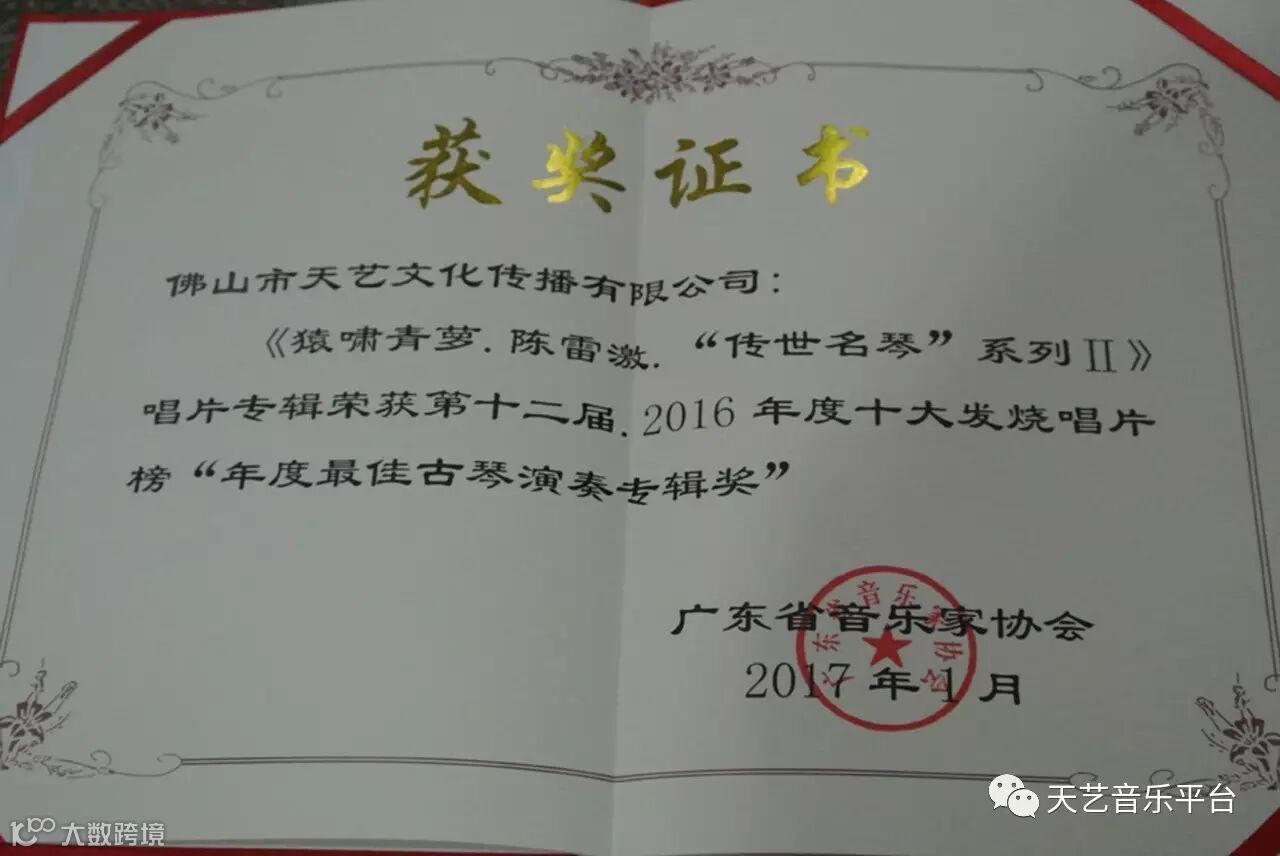 获奖证书
佛山市天艺文化传播有限公司：
《猿啸青萝.陈雷激.“传世名琴”系列II》
唱片专辑荣获第十二届.2016年度十大发烧唱片
榜“年度最佳古琴演奏专辑奖”
广东省音乐家协会
2017年1月
天艺音乐平台
大数跨境